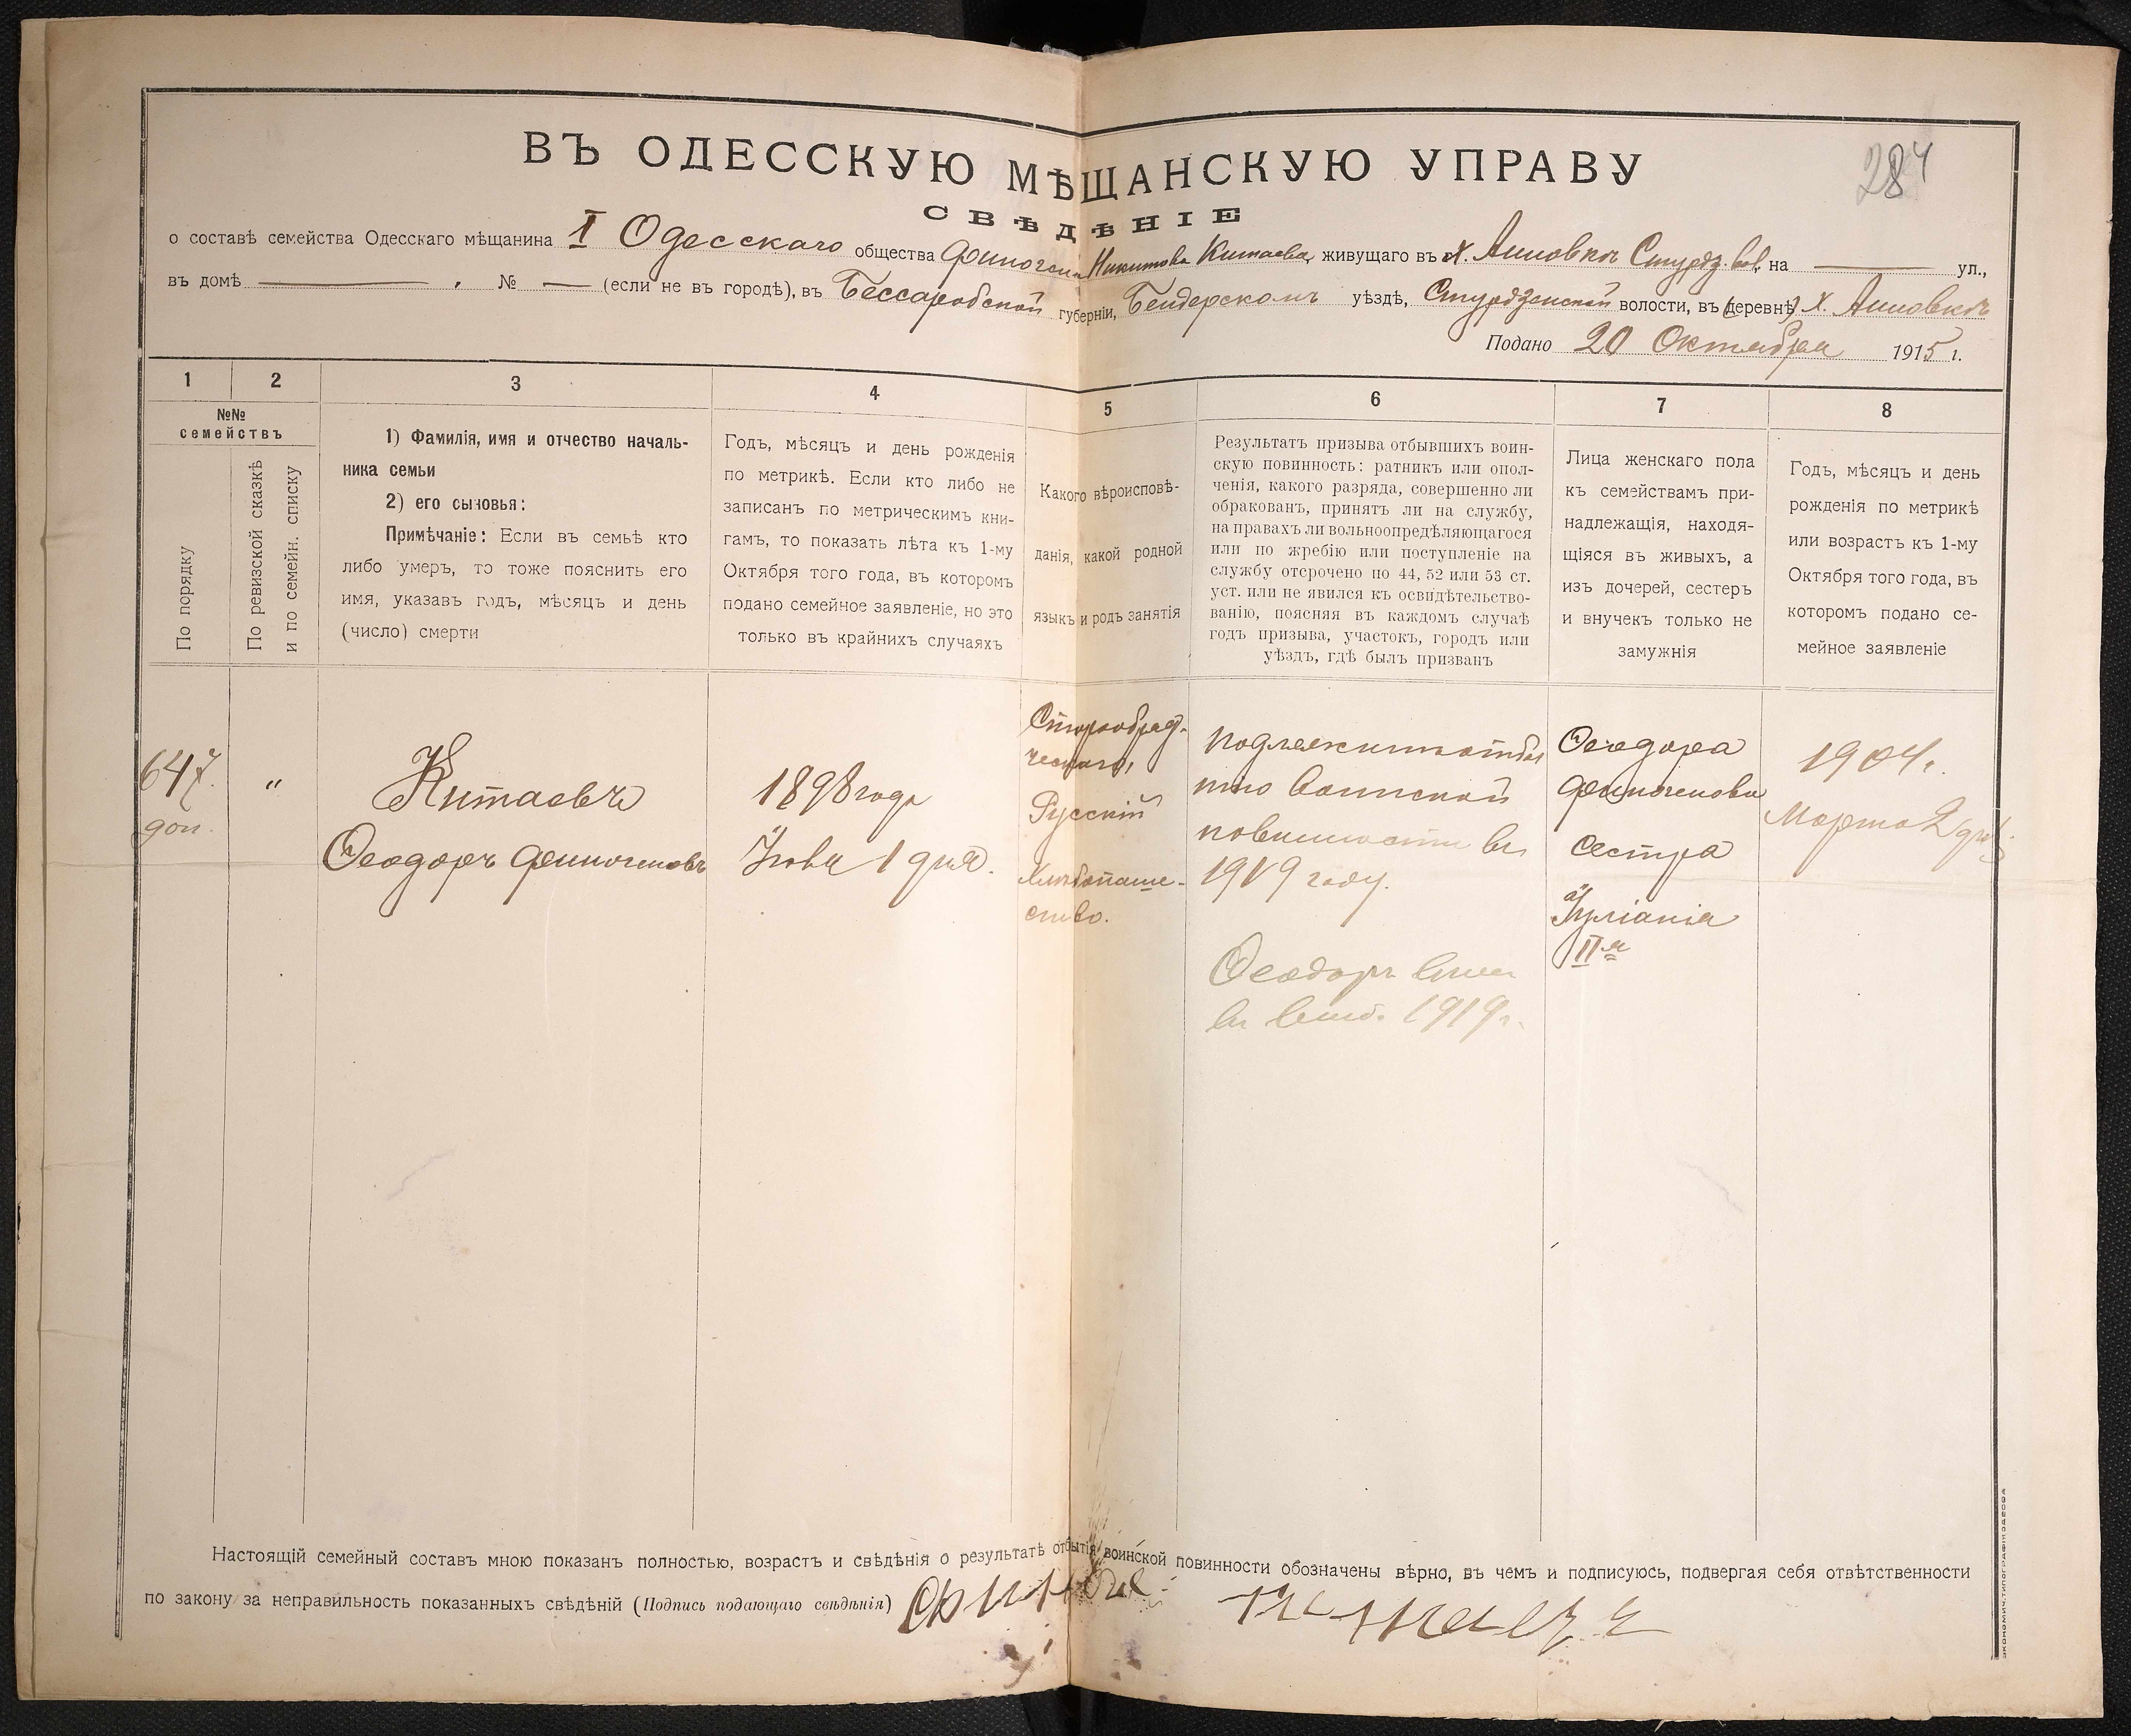 284
ВЪ ОДЕССКУЮ МѢЩАНСКУЮ УПРАВУ
СВѢДѢНІЕ
о составѣ семейства Одесскаго мѣщанина I Одесскаго общества Финогена Никитова Китаева, живущаго въ х. Анновкѣ Стурдз. вол. на ул.,
въ домѣ , № (если не въ городѣ), въ Бессарабской губерніи, Бендерскомъ уѣздѣ, Стурдзенской волости, въ (деревнѣ) х. Анновкѣ
Подано 20 Октября 1915 г.
1 2 3 4 5 6 7 8
№№
семействъ
По порядку
По ревизской сказкѣ
и по семейн. списку
1) Фамилія, имя и отчество началь-
ника семьи
2) его сыновья:
Примѣчаніе: Если въ семьѣ кто
либо умеръ, то тоже пояснить его
имя, указавъ годъ, мѣсяцъ и день
(число) смерти
Годъ, мѣсяцъ и день рожденія
по метрикѣ. Если кто либо не
записанъ по метрическимъ кни-
гамъ, то показать лѣта къ 1-му
Октября того года, въ которомъ
подано семейное заявленіе, но это
только въ крайнихъ случаяхъ
Какого вѣроисповѣ-
данія, какой родной
языкъ и родъ занятія
Результатъ призыва отбывшихъ воин-
скую повинность: ратникъ или опол-
ченія, какого разряда, совершенно ли
обракованъ, принятъ ли на службу,
на правахъ ли вольноопредѣляющагося
или по жребію или поступленіе на
службу отсрочено по 44, 52 или 53 ст.
уст. или не явился къ освидѣтельство-
ванію, поясняя въ каждомъ случаѣ
годъ призыва, участокъ, городъ или
уѣздъ, гдѣ былъ призванъ
Лица женскаго пола
къ семействамъ при-
надлежащія, находя-
щіяся въ живыхъ, а
изъ дочерей, сестеръ
и внучекъ только не
замужнія
Годъ, мѣсяцъ и день
рожденія по метрикѣ
или возрастъ къ 1-му
Октября того года, въ
которомъ подано се-
мейное заявленіе
647.
доп.
"
Китаевъ
Ѳеодоръ Финогеновъ
1898 года
1 дня.
Старообряд-
ческаго,
Русскій
Хлѣбопаше-
ство.
подлежитъ отбы
тію воинской
повинности въ
1919 году.
Ѳеодоръ внес
въ 1919 г.
Ѳеодора
Финогенова
сестра
Іуліанія
IIя
1904 г.
Марта 2 дня.
Настоящій семейный составъ мною показанъ полностью, возрастъ и свѣдѣнія о результатѣ отбытія воинской повинности обозначены вѣрно, въ чемъ и подписуюсь, подвергая себя отвѣтственности
по закону за неправильность показанныхъ свѣдѣній (Подпись подающаго свѣдѣнія) Финоге Китаевъ